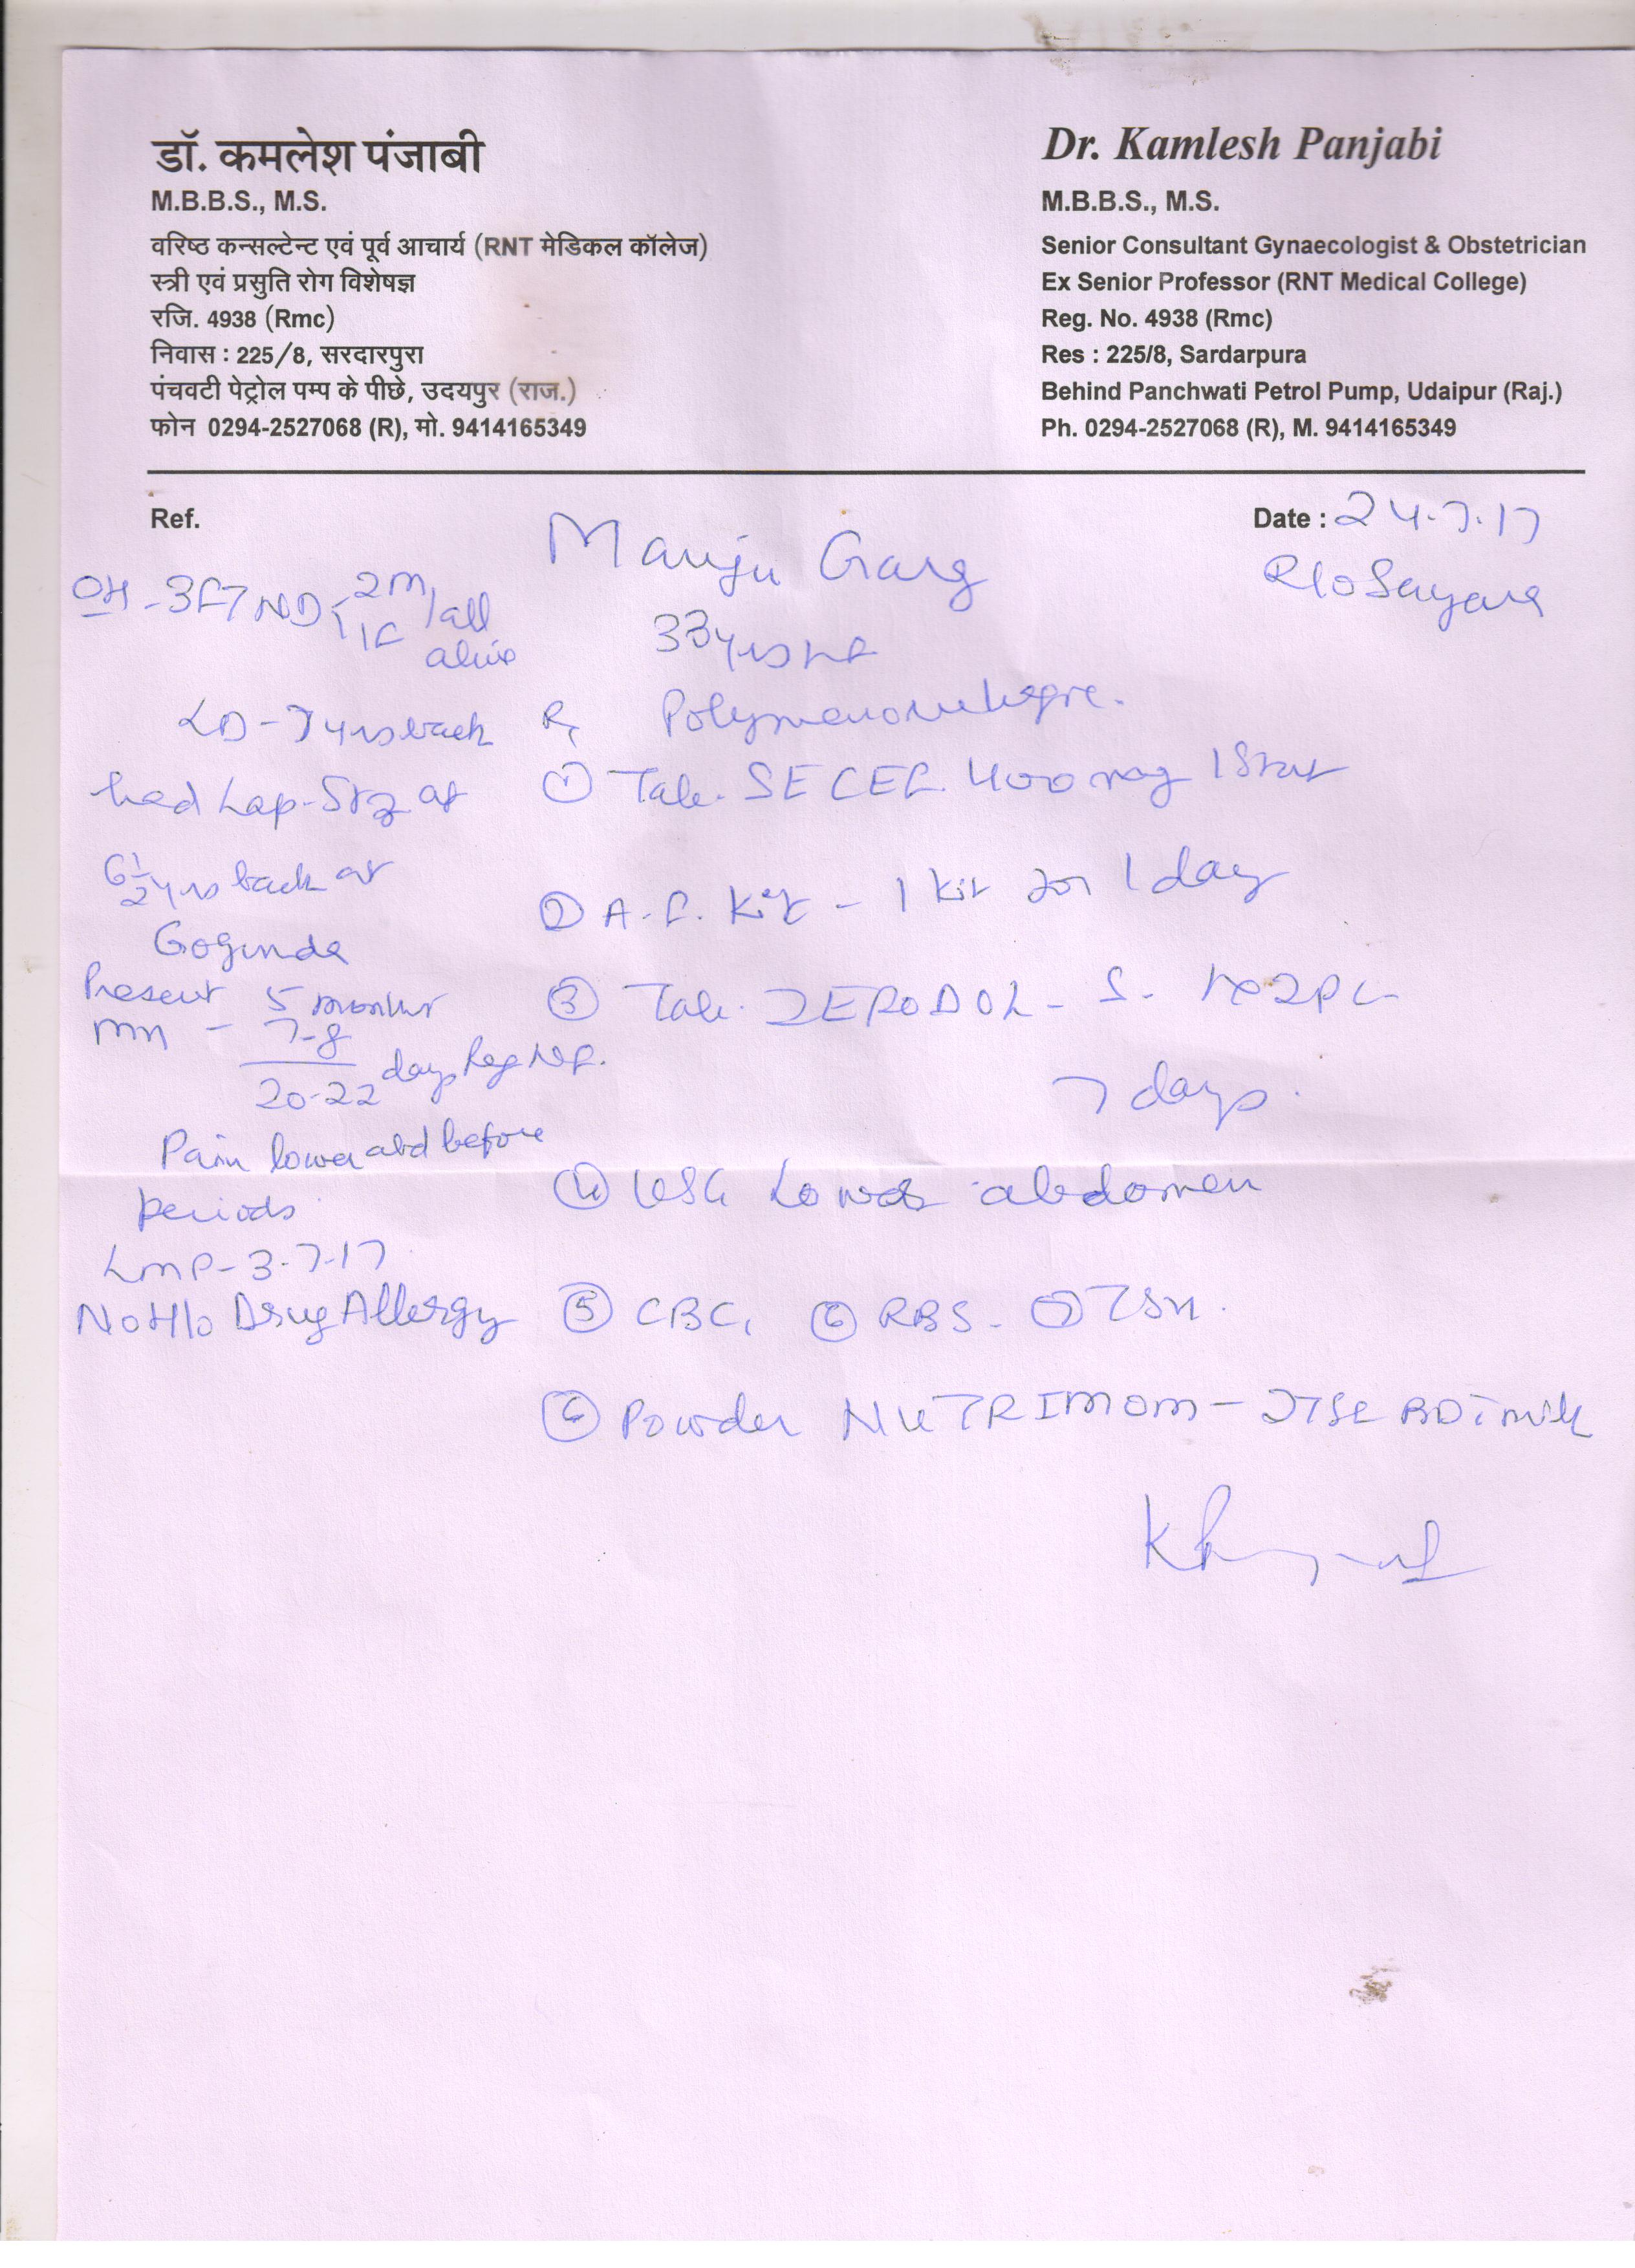 डॉ. कमलेश पंजाबी
M.B.B.S., M.S.
वरिष्ठ कन्सल्टेन्ट एवं पूर्व आचार्य (RNT मेडिकल कॉलेज)
स्त्री एवं प्रसुति रोग विशेषज्ञ
रजि. 4938 (Rmc)
निवास : 225/8, सरदारपुरा
पंचवटी पेट्रोल पम्प के पीछे, उदयपुर (राज.)
फोन 0294-2527068 (R), मो. 9414165349
Dr. Kamlesh Panjabi
M.B.B.S., M.S.
Senior Consultant Gynaecologist & Obstetrician
Ex Senior Professor (RNT Medical College)
Reg. No. 4938 (Rmc)
Res : 225/8, Sardarpura
Behind Panchwati Petrol Pump, Udaipur (Raj.)
Ph. 0294-2527068 (R), M. 9414165349
Ref.
Date : 24.7.17
Manju Garg
R/o
33 yrs
OH - 3FTND 2M
1F all
alive
LD - 7 yrs back
had Lap. at
6½ yrs back at
Gogunda
Present 5 months
MH - 7-8
20-22 days Reg
Pain lower abd before
periods
LMP - 3.7.17
No H/o Drug Allergy
Rx
① Tab. 400 mg 1 Stat
② A.F. Kit - 1 kit for 1 day
③ Tab. ZERODOL - S.
7 days.
④ USG Lower abdomen
⑤ CBC, ⑥ RBS. ⑦ TSH.
Powder NUTRIMOM - 2TSF BD milk